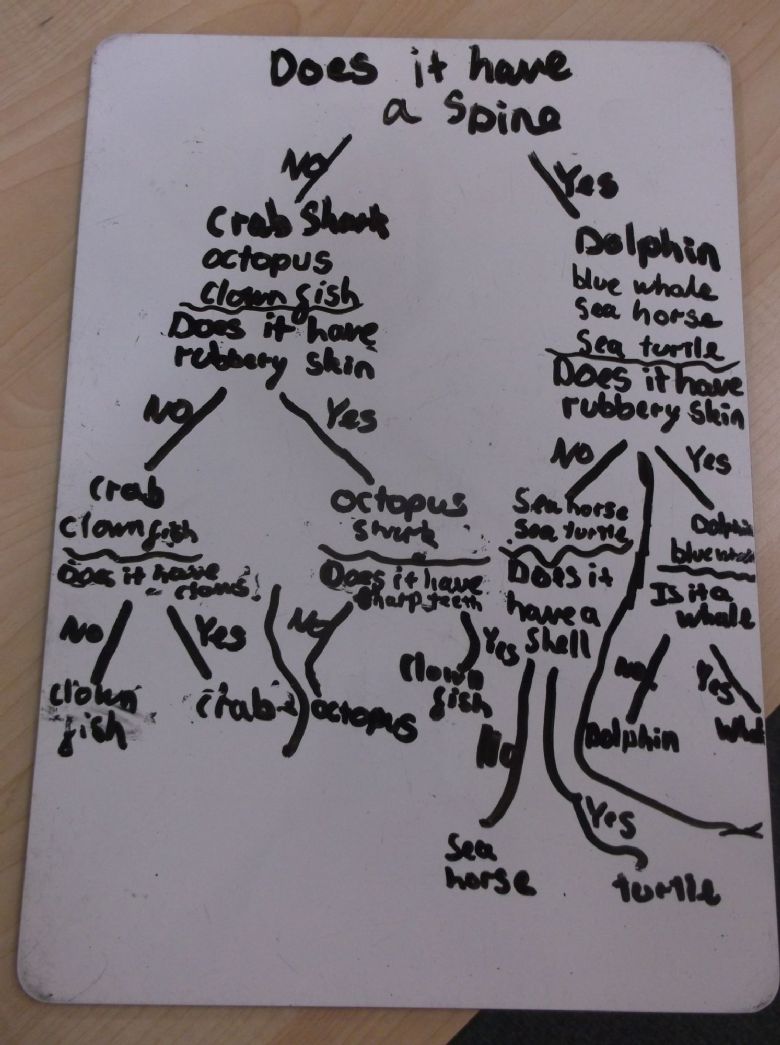 Does it have
a Spine
NO
Yes
Crab Shark
octopus
clown fish
Does it have
rubbery skin
Dolphin
blue whale
Sea horse
Sea turtle
Does it have
rubbery skin
NO
Yes
NO
Yes
crab
clown fish
Does it have
claws
octopus
shark
Does it have
sharp teeth
Sea horse
Sea turtle
Does it
have a
Shell
Dolphin
blue whale
Is it a
whale
No
Yes
No
Yes
No
Yes
clown
fish
crab
octopus
clown
fish
Dolphin
Wha
No
Yes
Sea
horse
turtle